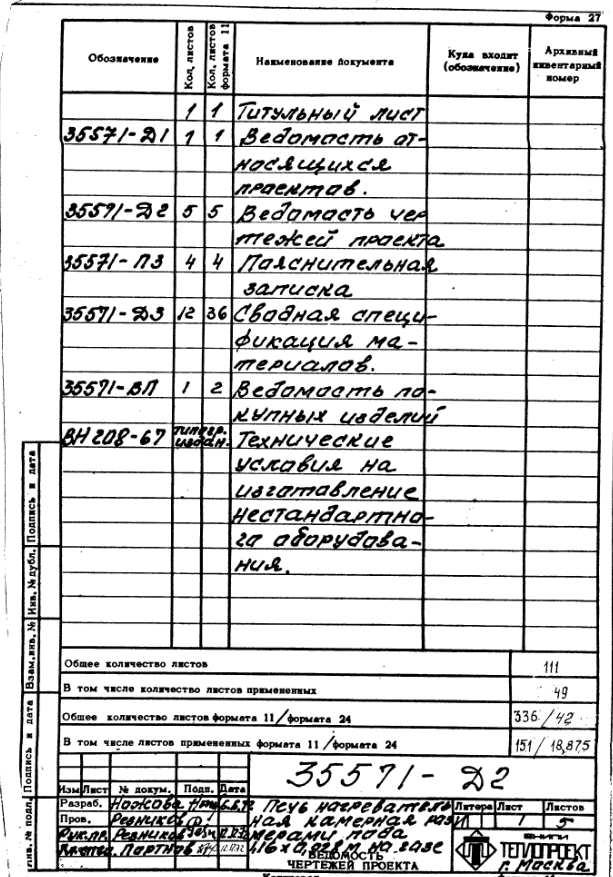 Форма 27
Обозначение Кол. листов Кол. листов формата 11 Наименование документа Куда входит (обозначение) Архивный инвентарный номер
1 1 Титульный лист
35571-Д1 1 1 Ведомость от-
носящихся
проектов.
35571-Д2 5 5 Ведомость чер
тежей проекта
35571-ПЗ 4 4 Пояснительная
записка
35571-Д3 12 36 Сводная специ-
фикация ма-
териалов.
35571-ВП 1 2 Ведомость по-
купных изделий
ВН 208-67 типогр. издан. Технические
условия на
изготовление
нестандартно-
го оборудова-
ния.
Общее количество листов 111
В том числе количество листов примененных 49
Общее количество листов формата 11/формата 24 336/42
В том числе листов примененных формата 11/формата 24 151/18,875
35571-Д2
Изм Лист № докум. Подп. Дата
Разраб. Ножова
Пров. Резников
Рук.пр. Резников
Партнов
Печь нагреватель
ная камерная раз
мерами пода
1,16 х 0,928 м на газе
ВЕДОМОСТЬ
ЧЕРТЕЖЕЙ ПРОЕКТА
Литера Лист Листов
1 5
ВНИПИ
ТЕПЛОПРОЕКТ
г. Москва
Инв. № подл. Подпись и дата Взам. инв. № Инв. № дубл. Подпись и дата